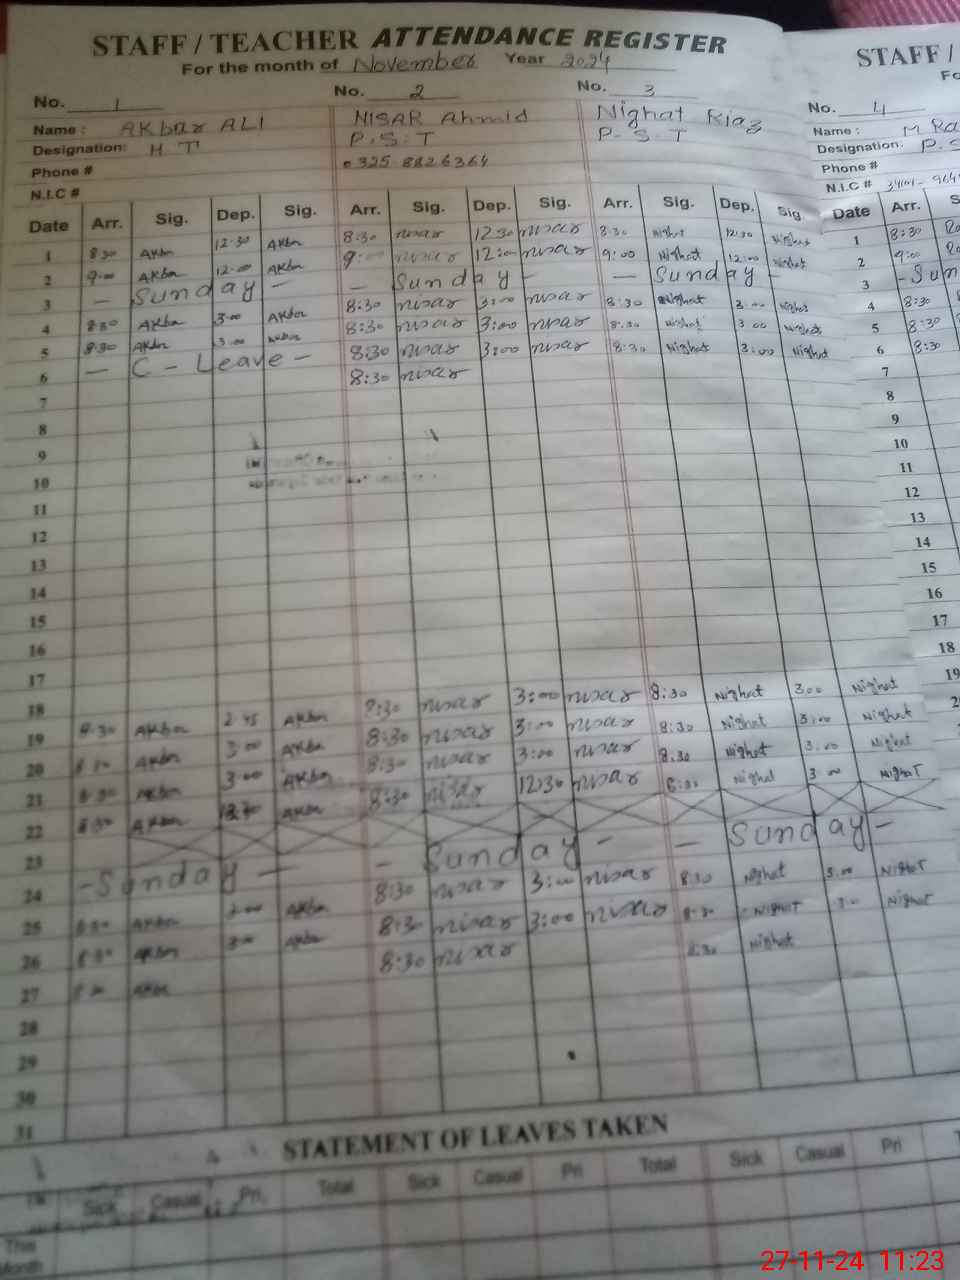 STAFF / TEACHER ATTENDANCE REGISTER
For the month of November Year 2024
No. 1 No. 2 No. 3
Name : AKbar ALI NISAR Ahmid Nighat Riaz
Designation: H T P.S.T P.S.T
Phone # 0325 8826364
N.I.C #
Date Arr. Sig. Dep. Sig. Arr. Sig. Dep. Sig. Arr. Sig. Dep. Sig.
1 8:30 AKba 12:30 AKba 8:30 nisar 12:30 nisar 8:30 Nighat 12:30 Nighat
2 9:00 AKba 12:00 AKba 9:00 nisar 12:00 nisar 9:00 Nighat 12:00 Nighat
3 — Sunday — — Sunday — — Sunday —
4 8:30 AKba 3:00 AKba 8:30 nisar 3:00 nisar 8:30 Nighat 3:00 Nighat
5 8:30 AKba 3:00 AKba 8:30 nisar 3:00 nisar 8:30 Nighat 3:00 Nighat
6 — C - Leave — 8:30 nisar 3:00 nisar 8:30 Nighat 3:00 Nighat
7 8:30 nisar
8
9
10
11
12
13
14
15
16
17
18
19 8:30 AKba 2:45 AKba 8:30 nisar 3:00 nisar 8:30 Nighat 3:00 Nighat
20 AKba 3:00 AKba 8:30 nisar 3:00 nisar 8:30 Nighat 3:00 Nighat
21 8:30 AKba 3:00 AKba 8:30 nisar 3:00 nisar 8:30 Nighat 3:00 Nighat
22 8:30 AKba 12:30 AKba 8:30 nisar 12:30 nisar 8:30 Nighat 3:00 Nighat
23
24 — Sunday — — Sunday — — Sunday —
25 8:30 AKba 3:00 AKba 8:30 nisar 3:00 nisar 8:30 Nighat 3:00 Nighat
26 8:30 AKba 3:00 AKba 8:30 nisar 3:00 nisar 8:30 Nighat Nighat
27 AKba 8:30 nisar 8:30 Nighat
28
29
30
31
STATEMENT OF LEAVES TAKEN
Sick Casual Pri. Total Sick Casual Pri Total Sick Casual Pri
This
Month
STAFF /
No. 4
Name : M Ra
Designation: P.S
Phone #
N.I.C #
Date Arr.
1 8:30
2 9:00
3 - Sun
4 8:30
5 8:30
6 8:30
7
8
9
10
11
12
13
14
15
16
17
18
19
27-11-24 11:23